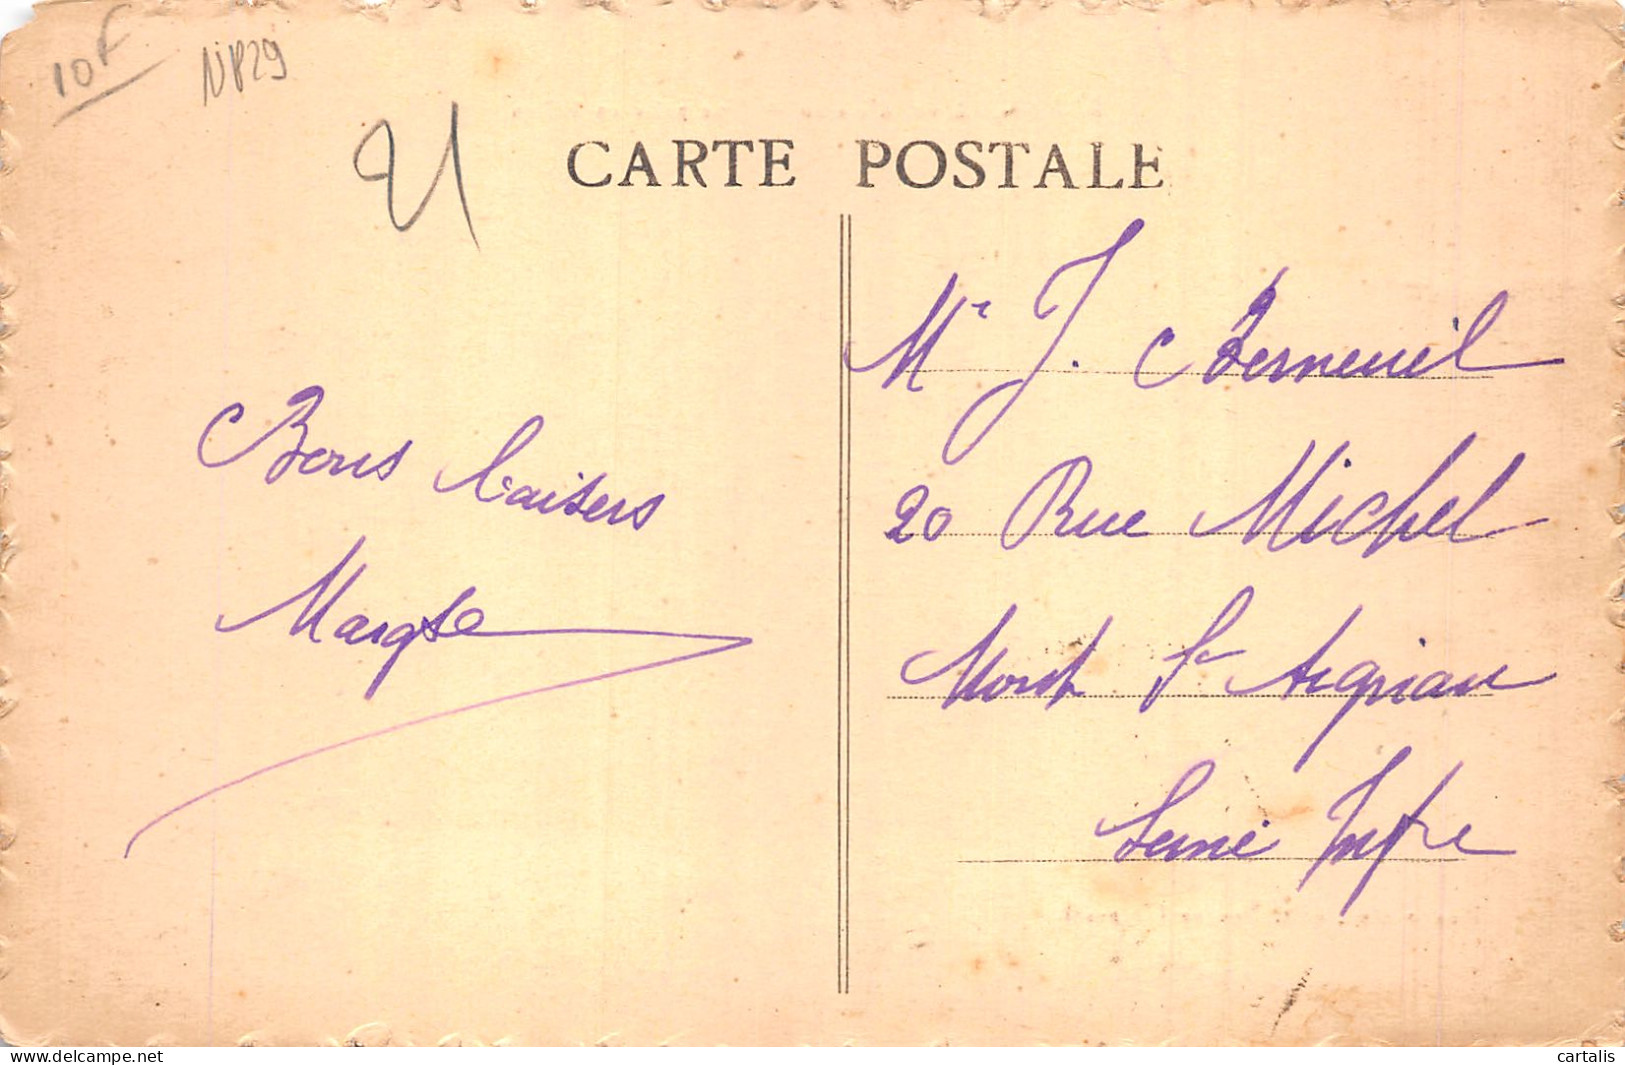 10F
NP29
21
CARTE POSTALE
Mr J. Berneuil
20 Rue Michel
Bons baisers
Margte
Mont St Aignan
Seine Infre
delcampe.net
cartalis